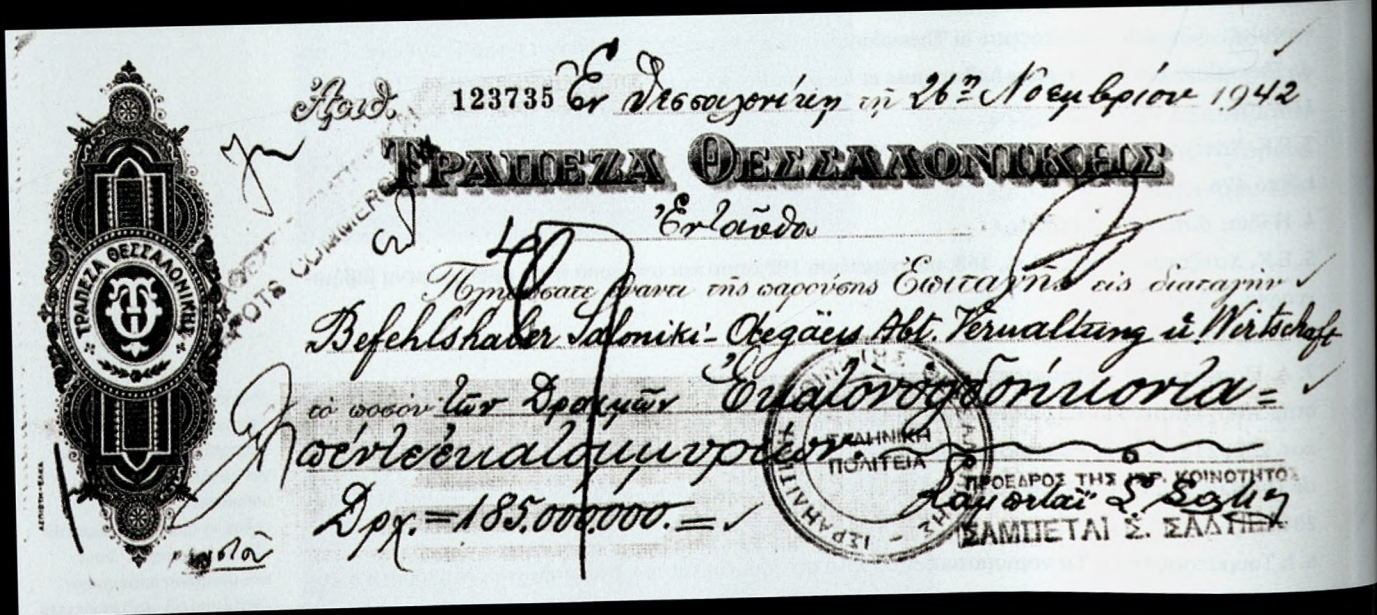 Ἀριθ. 123735 Ἐν Θεσσαλονίκῃ τῇ 26ῃ Νοεμβρίου 1942
ΤΡΑΠΕΖΑ ΘΕΣΣΑΛΟΝΙΚΗΣ
Ἐνταῦθα
Πληρώσατε ἔναντι τῆς παρούσης Ἐπιταγῆς εἰς διαταγὴν
Befehlshaber Saloniki-Aegäis Abt. Verwaltung u. Wirtschaft
τὸ ποσὸν τῶν Δραχμῶν Ἑκατὸνογδοήκοντα=
πέντεἑκατομμυρίων.
Δρχ. =185.000.000.=
ΤΡΑΠΕΖΑ ΘΕΣΣΑΛΟΝΙΚΗΣ
ΕΛΛΗΝΙΚΗ
ΠΟΛΙΤΕΙΑ
ΠΡΟΕΔΡΟΣ ΤΗΣ ΙΣΡ. ΚΟΙΝΟΤΗΤΟΣ
ΣΑΜΠΕΤΑΙ Σ. ΣΑΛΤΙΕΛ